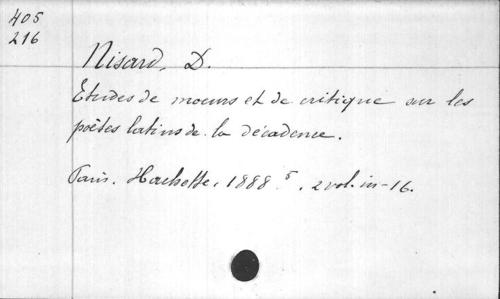 405
216
Nisard, D.
Etudes de moeurs et de critique sur les
poètes latins de la décadence.
Paris. Hachette, 1888 5. 2 vol. in-16.